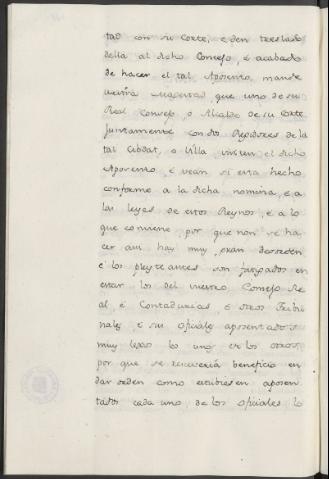 tad con su Corte, e den treslado
della al dicho Consejo, e acabado
de hacer el tal Aposento, mande
vuestra Magestad, que uno de su
Real Consejo, o Alcalde de su Corte
juntamente con dos Regidores de la
tal Cibdat, o Villa visiten el dicho
Aposento, e vean si esta hecho
conforme a la dicha nomina, e a
las leyes de estos Reynos, e a lo
que conviene, por que non se ha-
cer asi hay muy gran desorden
e los pleyteantes son fatigados en
estar los del vuestro Consejo Re
al, e Contadurias, e otros Tribu
nales, e sus oficiales aposentados
muy lexos los unos de los otros,
por que se recivería beneficio en
dar orden como estubiesen aposen
tados cada uno de los oficiales lo